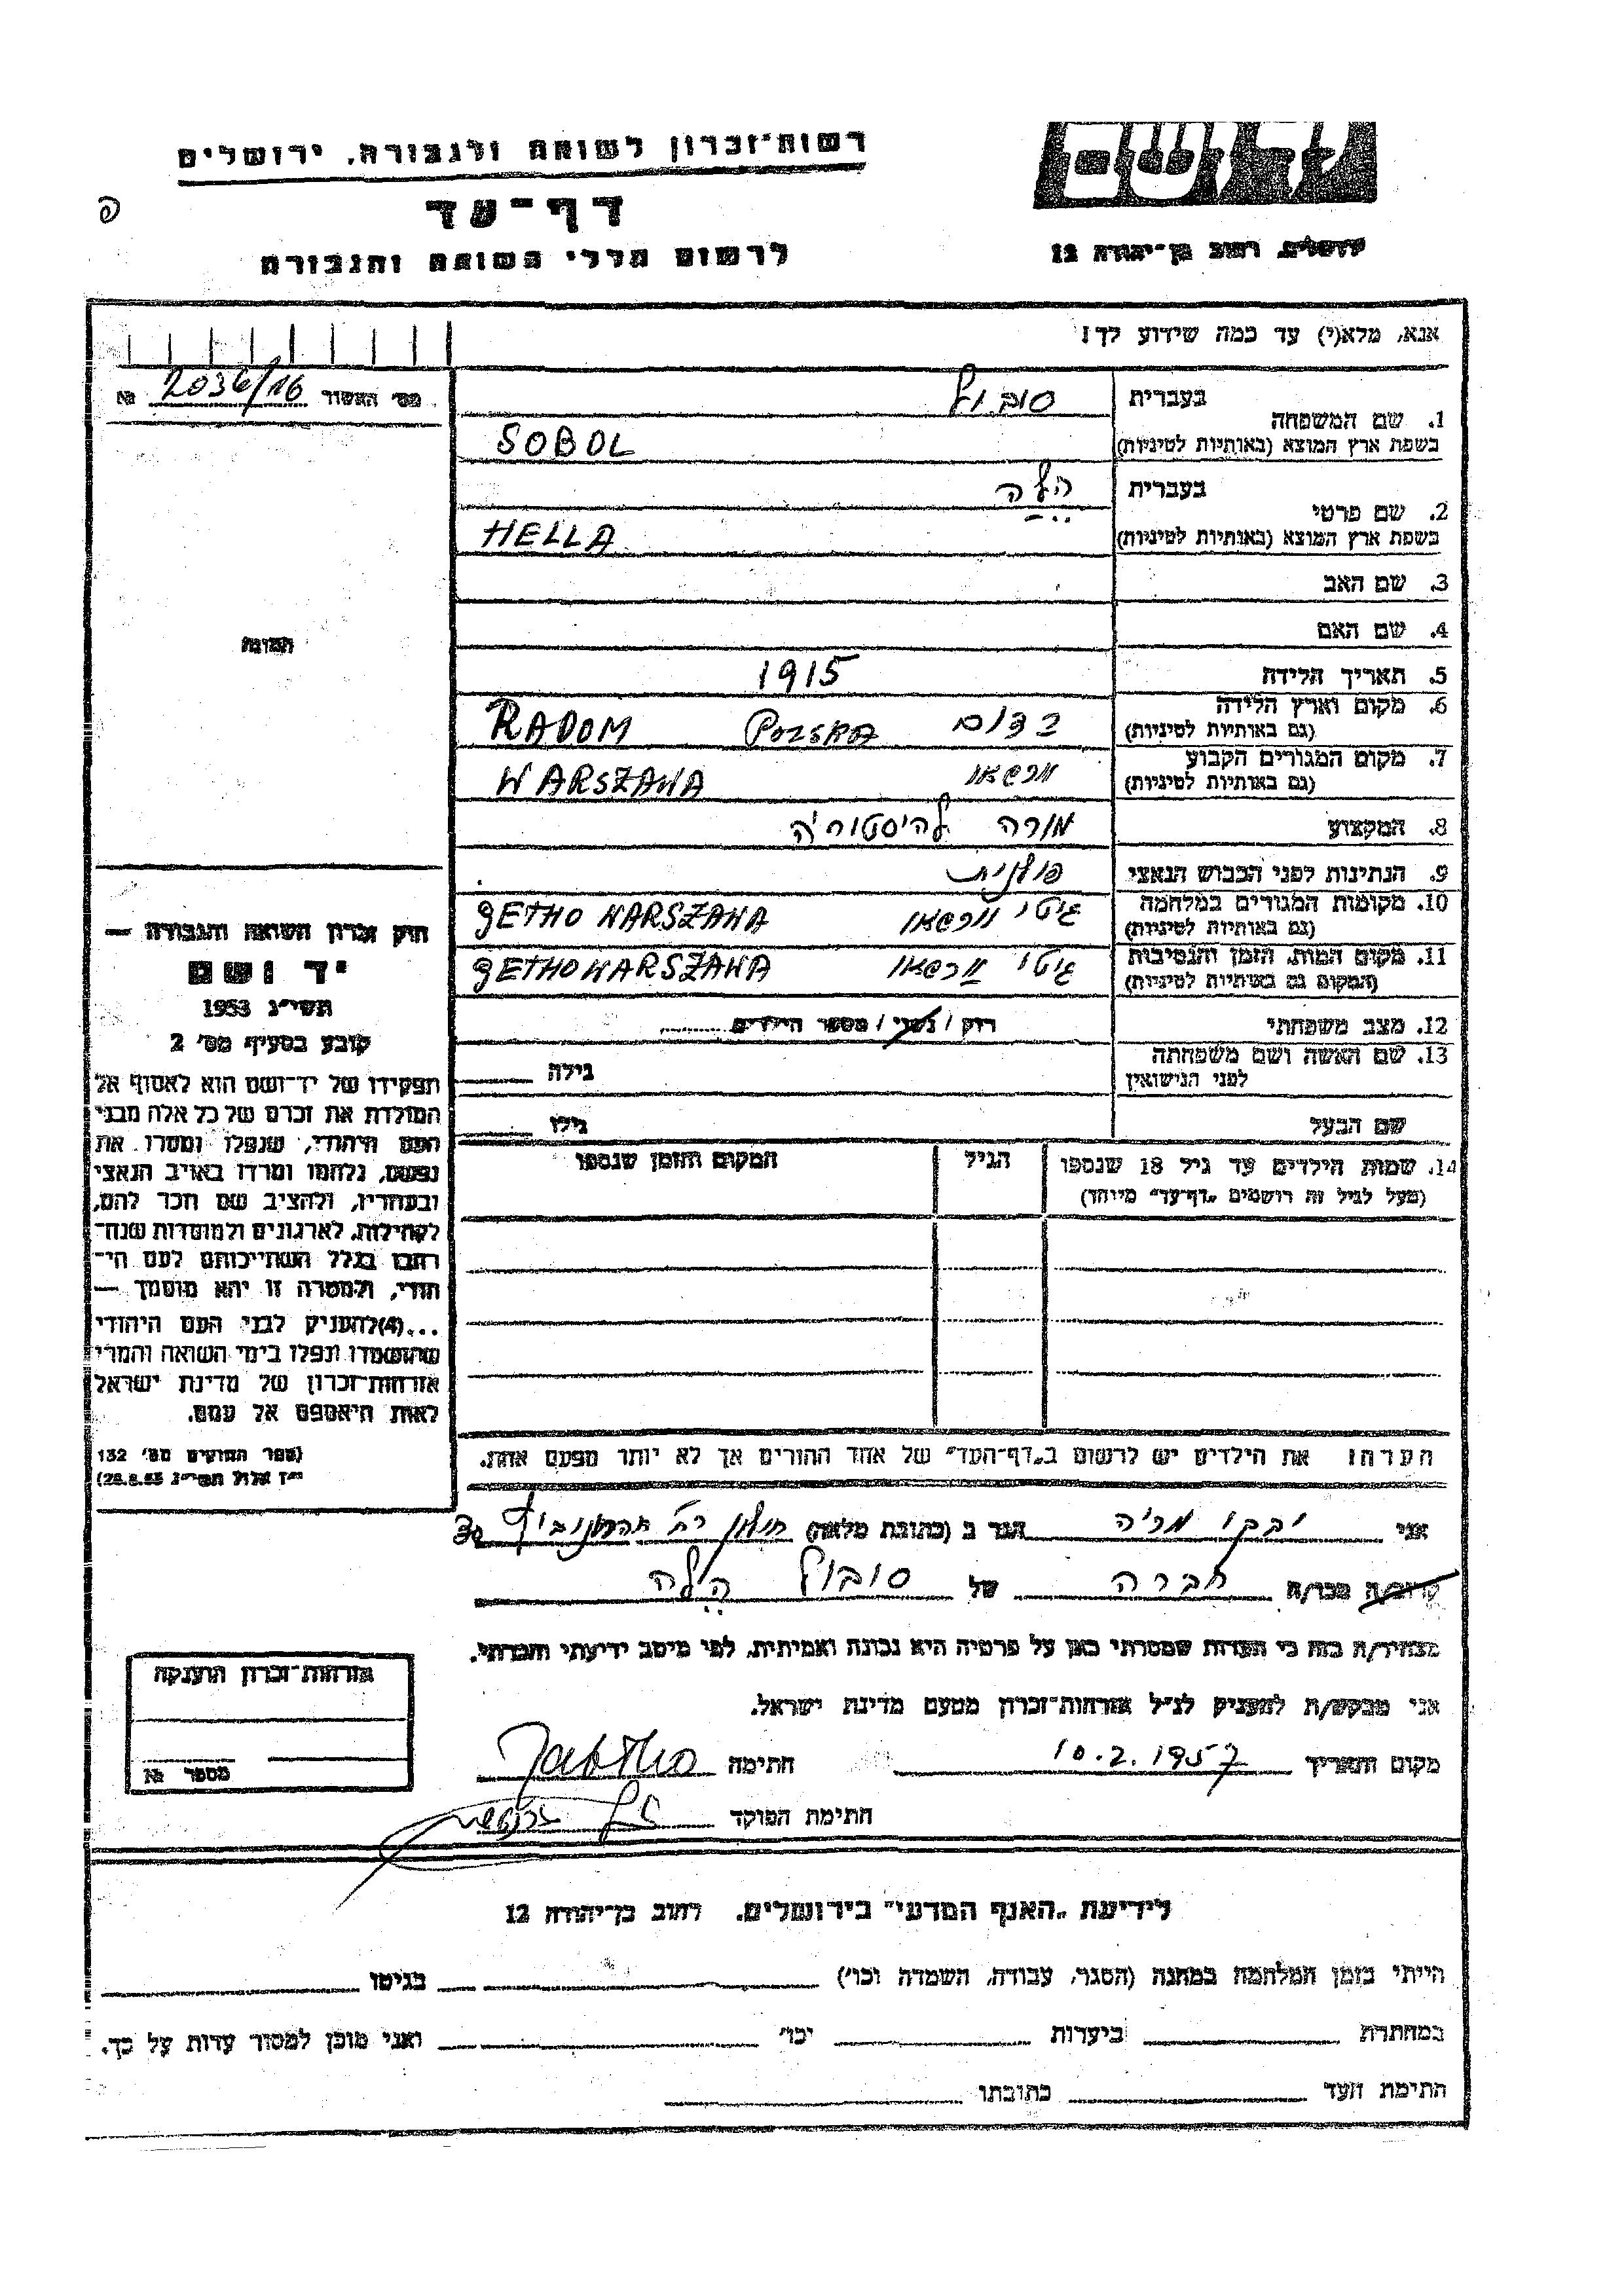 רשות־זכרון לשואה ולגבורה, ירושלים
דף־עד
לרשום חללי השואה והגבורה
יד ושם
ירושלים, רחוב בן־יהודה 12
אנא, מלא(י) עד כמה שידוע לך!
מס' האשור 2036/16 №
1. שם המשפחה
בעברית סובול
בשפת ארץ המוצא (באותיות לטיניות) SOBOL
2. שם פרטי
בעברית הלה
בשפת ארץ המוצא (באותיות לטיניות) HELLA
3. שם האב
4. שם האם
5. תאריך הלידה 1915
6. מקום וארץ הלידה
(גם באותיות לטיניות) רדום POLSKA RADOM
7. מקום המגורים הקבוע
(גם באותיות לטיניות) ורשאו WARSZAWA
8. המקצוע מורה להיסטוריה
9. הנתינות לפני הכבוש הנאצי פולנית
10. מקומות המגורים במלחמה
(גם באותיות לטיניות) גיטו וורשאו GETHO WARSZAWA
11. מקום המות, הזמן והנסיבות
(המקום גם באותיות לטיניות) גיטו וורשאו GETHO WARSZAWA
12. מצב משפחתי רווק / נשוי / מספר הילדים
13. שם האשה ושם משפחתה
לפני הנישואין
גילה
שם הבעל
גילו
14. שמות הילדים עד גיל 18 שנספו
(מעל לגיל זה רושמים „דף־עד" מיוחד)
הגיל
המקום והזמן שנספו
הערה: את הילדים יש לרשום ב„דף־העד" של אחד ההורים אך לא יותר מפעם אחת.
תמונה
חוק זכרון השואה והגבורה —
יד ושם
תשי"ג 1953
קובע בסעיף מס' 2
תפקידו של יד־ושם הוא לאסוף אל
המולדת את זכרם של כל אלה מבני
העם היהודי, שנפלו ומסרו את
נפשם, נלחמו ומרדו באויב הנאצי
ובעוזריו, ולהציב שם וזכר להם,
לקהילות, לארגונים ולמוסדות שנח־
רבו בגלל השתייכותם לעם הי־
הודי, ולמטרה זו יהא מוסמך —
...(4) להעניק לבני העם היהודי
שהושמדו ונפלו בימי השואה והמרי
אזרחות־זכרון של מדינת ישראל
לאות היאספם אל עמם.
(ספר החוקים מס' 132
י"ז אלול תשי"ג 28.8.53)
אני יבקו מריה הגר ב (כתובת מלאה) חולון רח'
קרוב/ה מכר/ה חברה של סובול הילה
מצהיר/ה בזה כי העדות שמסרתי כאן על פרטיה היא נכונה ואמיתית, לפי מיטב ידיעתי והכרתי.
אני מבקש/ת להעניק לנ"ל אזרחות־זכרון מטעם מדינת ישראל.
מקום ותאריך 10.2.1957 חתימה
חתימת הפוקד
אזרחות־זכרון הוענקה
מספר №
לידיעת „האגף המדעי" בירושלים, רחוב בן־יהודה 12
הייתי בזמן המלחמה במחנה (הסגר, עבודה, השמדה וכו') בגיטו
במחתרת ביערות וכו' ואני מוכן למסור עדות על כך.
חתימת העד כתובתו